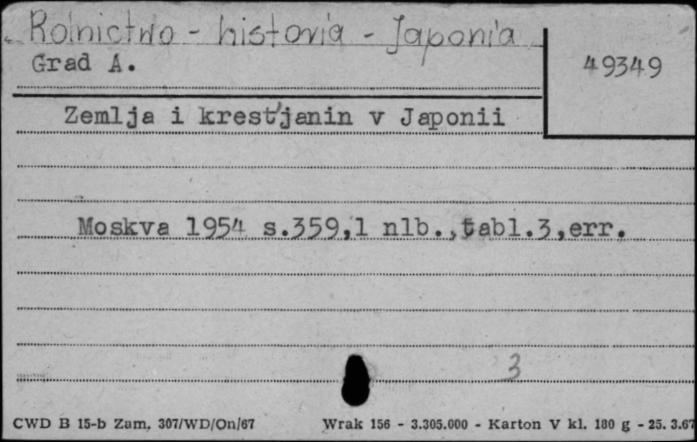 Rolnictwo - historia - Japonia
Grad A.
49349
Zemlja i krest'janin v Japonii
Moskva 1954 s.359,1 nlb.,tabl.3,err.
3
CWD B 15-b Zam. 307/WD/On/67
Wrak 156 - 3.305.000 - Karton V kl. 180 g - 25. 3.67